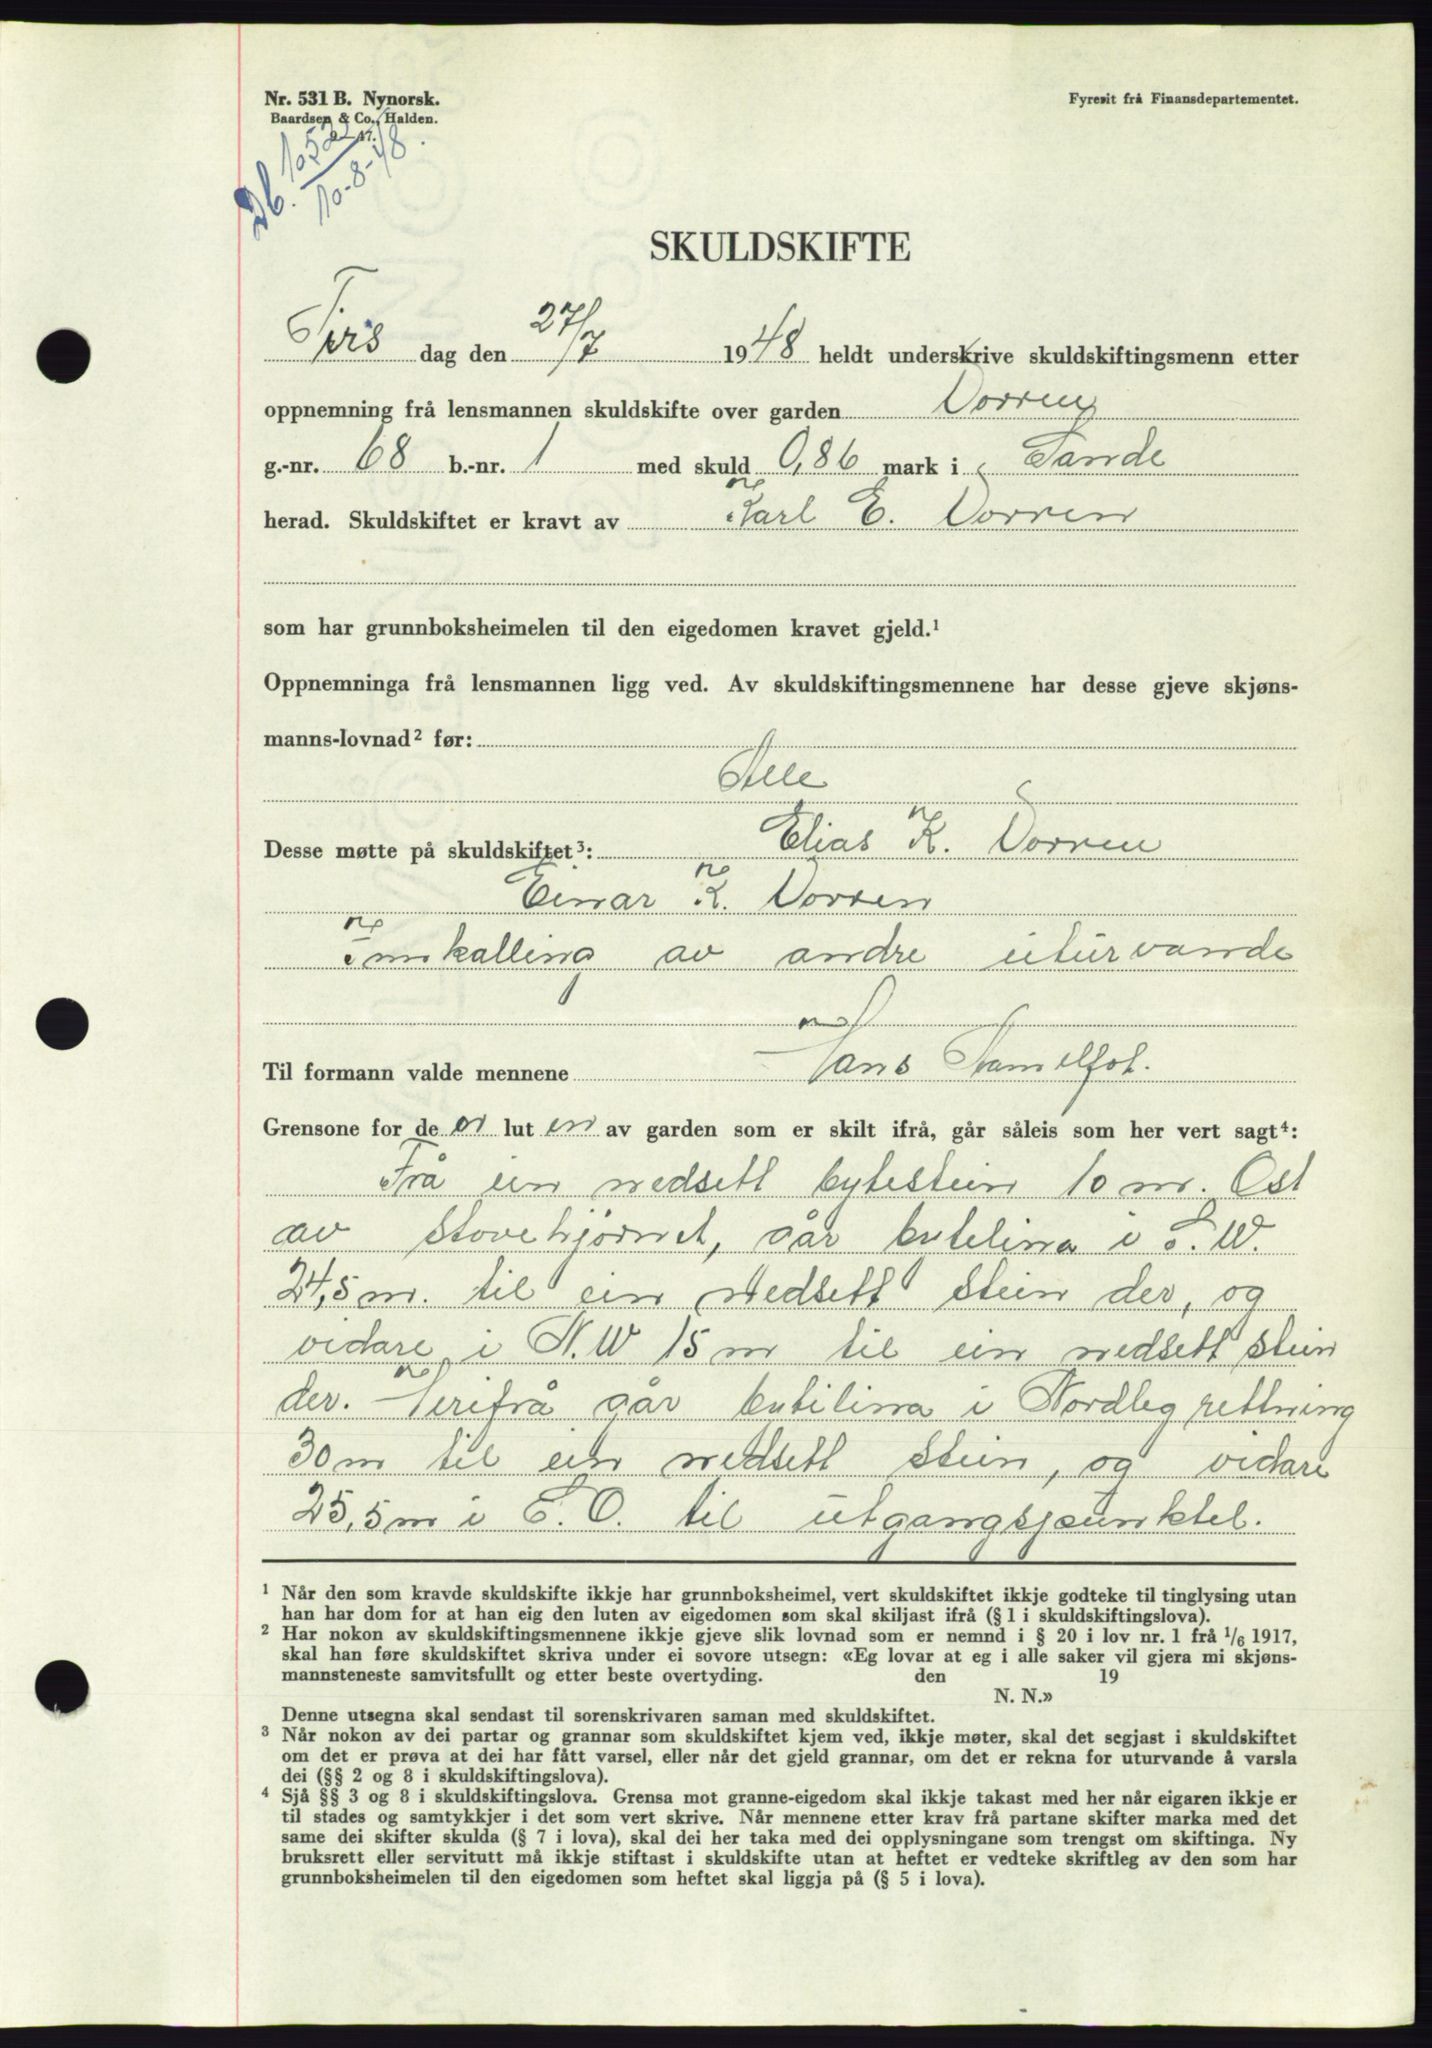 Nr. 531 B. Nynorsk.
Baardsen & Co., Halden.
9 47.
Fyresit frå Finansdepartementet.
Db. 1052
10-8-48.
SKULDSKIFTE
Tirs dag den 27/7 1948 heldt underskrive skuldskiftingsmenn etter
oppnemning frå lensmannen skuldskifte over garden Vorren
g.-nr. 68 b.-nr. 1 med skuld 0,86 mark i Sande
herad. Skuldskiftet er kravt av Karl E. Vorren
som har grunnboksheimelen til den eigedomen kravet gjeld.¹
Oppnemninga frå lensmannen ligg ved. Av skuldskiftingsmennene har desse gjeve skjøns-
manns-lovnad² før:
Alle
Desse møtte på skuldskiftet³: Elias K. Vorren
Einar K. Vorren
Innkalling av andre uturvande
Til formann valde mennene Hans
Grensone for de n lut en av garden som er skilt ifrå, går såleis som her vert sagt⁴:
Frå ein nedsett bytestein 10 m. Ost
av stovehjørnet, går bytelina i S.W.
24,5 m. til ein nedsett stein der, og
vidare i N.W 15 m til ein nedsett stein
der. Herifrå går bytelina i Nordleg rettning
30 m til ein nedsett stein, og vidare
25,5 m i S.O. til utgangspunktet.
¹ Når den som kravde skuldskifte ikkje har grunnboksheimel, vert skuldskiftet ikkje godteke til tinglysing utan
han har dom for at han eig den luten av eigedomen som skal skiljast ifrå (§ 1 i skuldskiftingslova).
² Har nokon av skuldskiftingsmennene ikkje gjeve slik lovnad som er nemnd i § 20 i lov nr. 1 frå 1/6 1917,
skal han føre skuldskiftet skriva under ei sovore utsegn: «Eg lovar at eg i alle saker vil gjera mi skjøns-
mannsteneste samvitsfullt og etter beste overtyding. den 19
N. N.»
Denne utsegna skal sendast til sorenskrivaren saman med skuldskiftet.
³ Når nokon av dei partar og grannar som skuldskiftet kjem ved, ikkje møter, skal det segjast i skuldskiftet
om det er prøva at dei har fått varsel, eller når det gjeld grannar, om det er rekna for uturvande å varsla
dei (§§ 2 og 8 i skuldskiftingslova).
⁴ Sjå §§ 3 og 8 i skuldskiftingslova. Grensa mot granne-eigedom skal ikkje takast med her når eigaren ikkje er
til stades og samtykkjer i det som vert skrive. Når mennene etter krav frå partane skifter marka med det
same dei skifter skulda (§ 7 i lova), skal dei her taka med dei opplysningane som trengst om skiftinga. Ny
bruksrett eller servitutt må ikkje stiftast i skuldskifte utan at heftet er vedteke skriftleg av den som har
grunnboksheimelen til den eigedomen som heftet skal liggja på (§ 5 i lova).